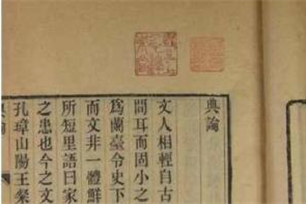 典論
文人相輕自古
問耳而固小之
爲蘭臺令史下
而文非一體鮮
所短里語曰家
之患也今之文
孔璋山陽王粲
典論